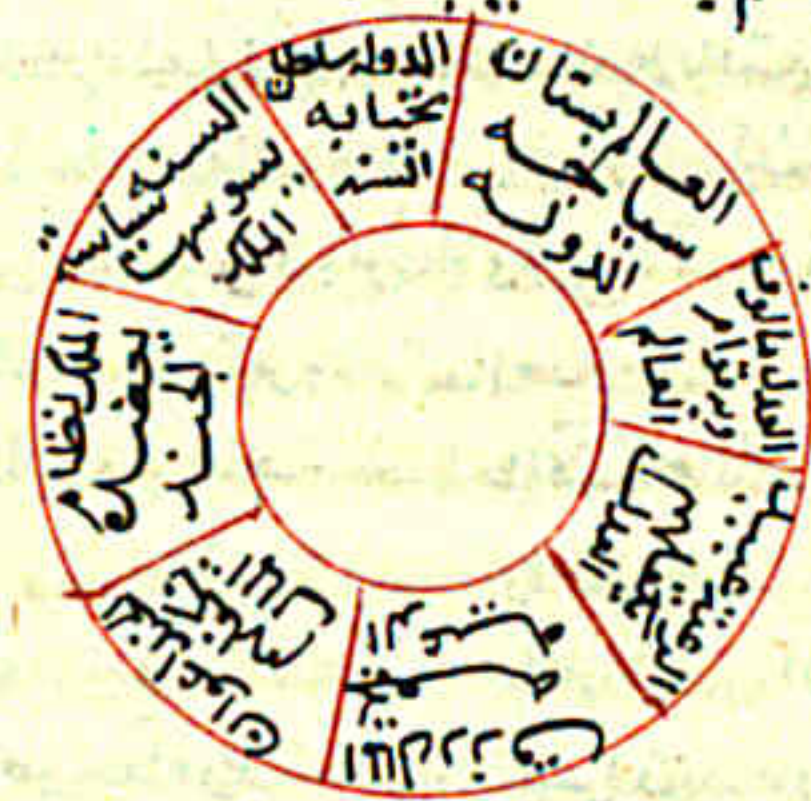 العالم بستان
سياجه
الدوله
الدوله سلطان
تحيا به
السنه
السنه سياسة
يسوسها
الملك
الملك نظام
يعضده
الجند
الجند اعوان
المال
المال رزق
الرعية
العدل
العدل مالوف
وبه قوام
العالم